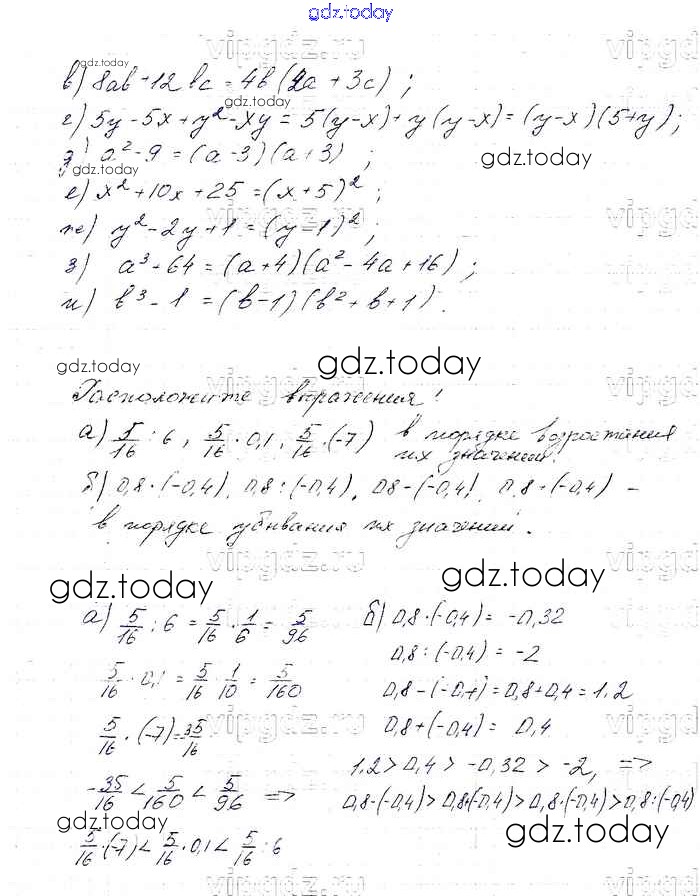 gdz.today
в) 8ab + 12bc = 4b(2a + 3c);
г) 5y - 5x + y² - xy = 5(y-x) + y(y-x) = (y-x)(5+y);
д) a² - 9 = (a-3)(a+3);
е) x² + 10x + 25 = (x+5)²;
ж) y² - 2y + 1 = (y-1)²;
з) a³ + 64 = (a+4)(a² - 4a + 16);
и) b³ - 1 = (b-1)(b² + b + 1).
gdz.today
Расположите выражения:
а) 5/16 : 6, 5/16 · 0,1, 5/16 · (-7) в порядке возростания
их значений.
б) 0,8 · (-0,4), 0,8 : (-0,4), 0,8 - (-0,4), 0,8 + (-0,4) -
в порядке убывания их значений.
gdz.today
а) 5/16 : 6 = 5/16 · 1/6 = 5/96
5/16 · 0,1 = 5/16 · 1/10 = 5/160
5/16 · (-7) = -35/16
-35/16 < 5/160 < 5/96 =>
5/16 · (-7) < 5/16 · 0,1 < 5/16 : 6
б) 0,8 · (-0,4) = -0,32
0,8 : (-0,4) = -2
0,8 - (-0,4) = 0,8 + 0,4 = 1,2
0,8 + (-0,4) = 0,4
1,2 > 0,4 > -0,32 > -2, =>
0,8-(-0,4) > 0,8+(-0,4) > 0,8·(-0,4) > 0,8:(-0,4)
gdz.today
vipgdz.ru